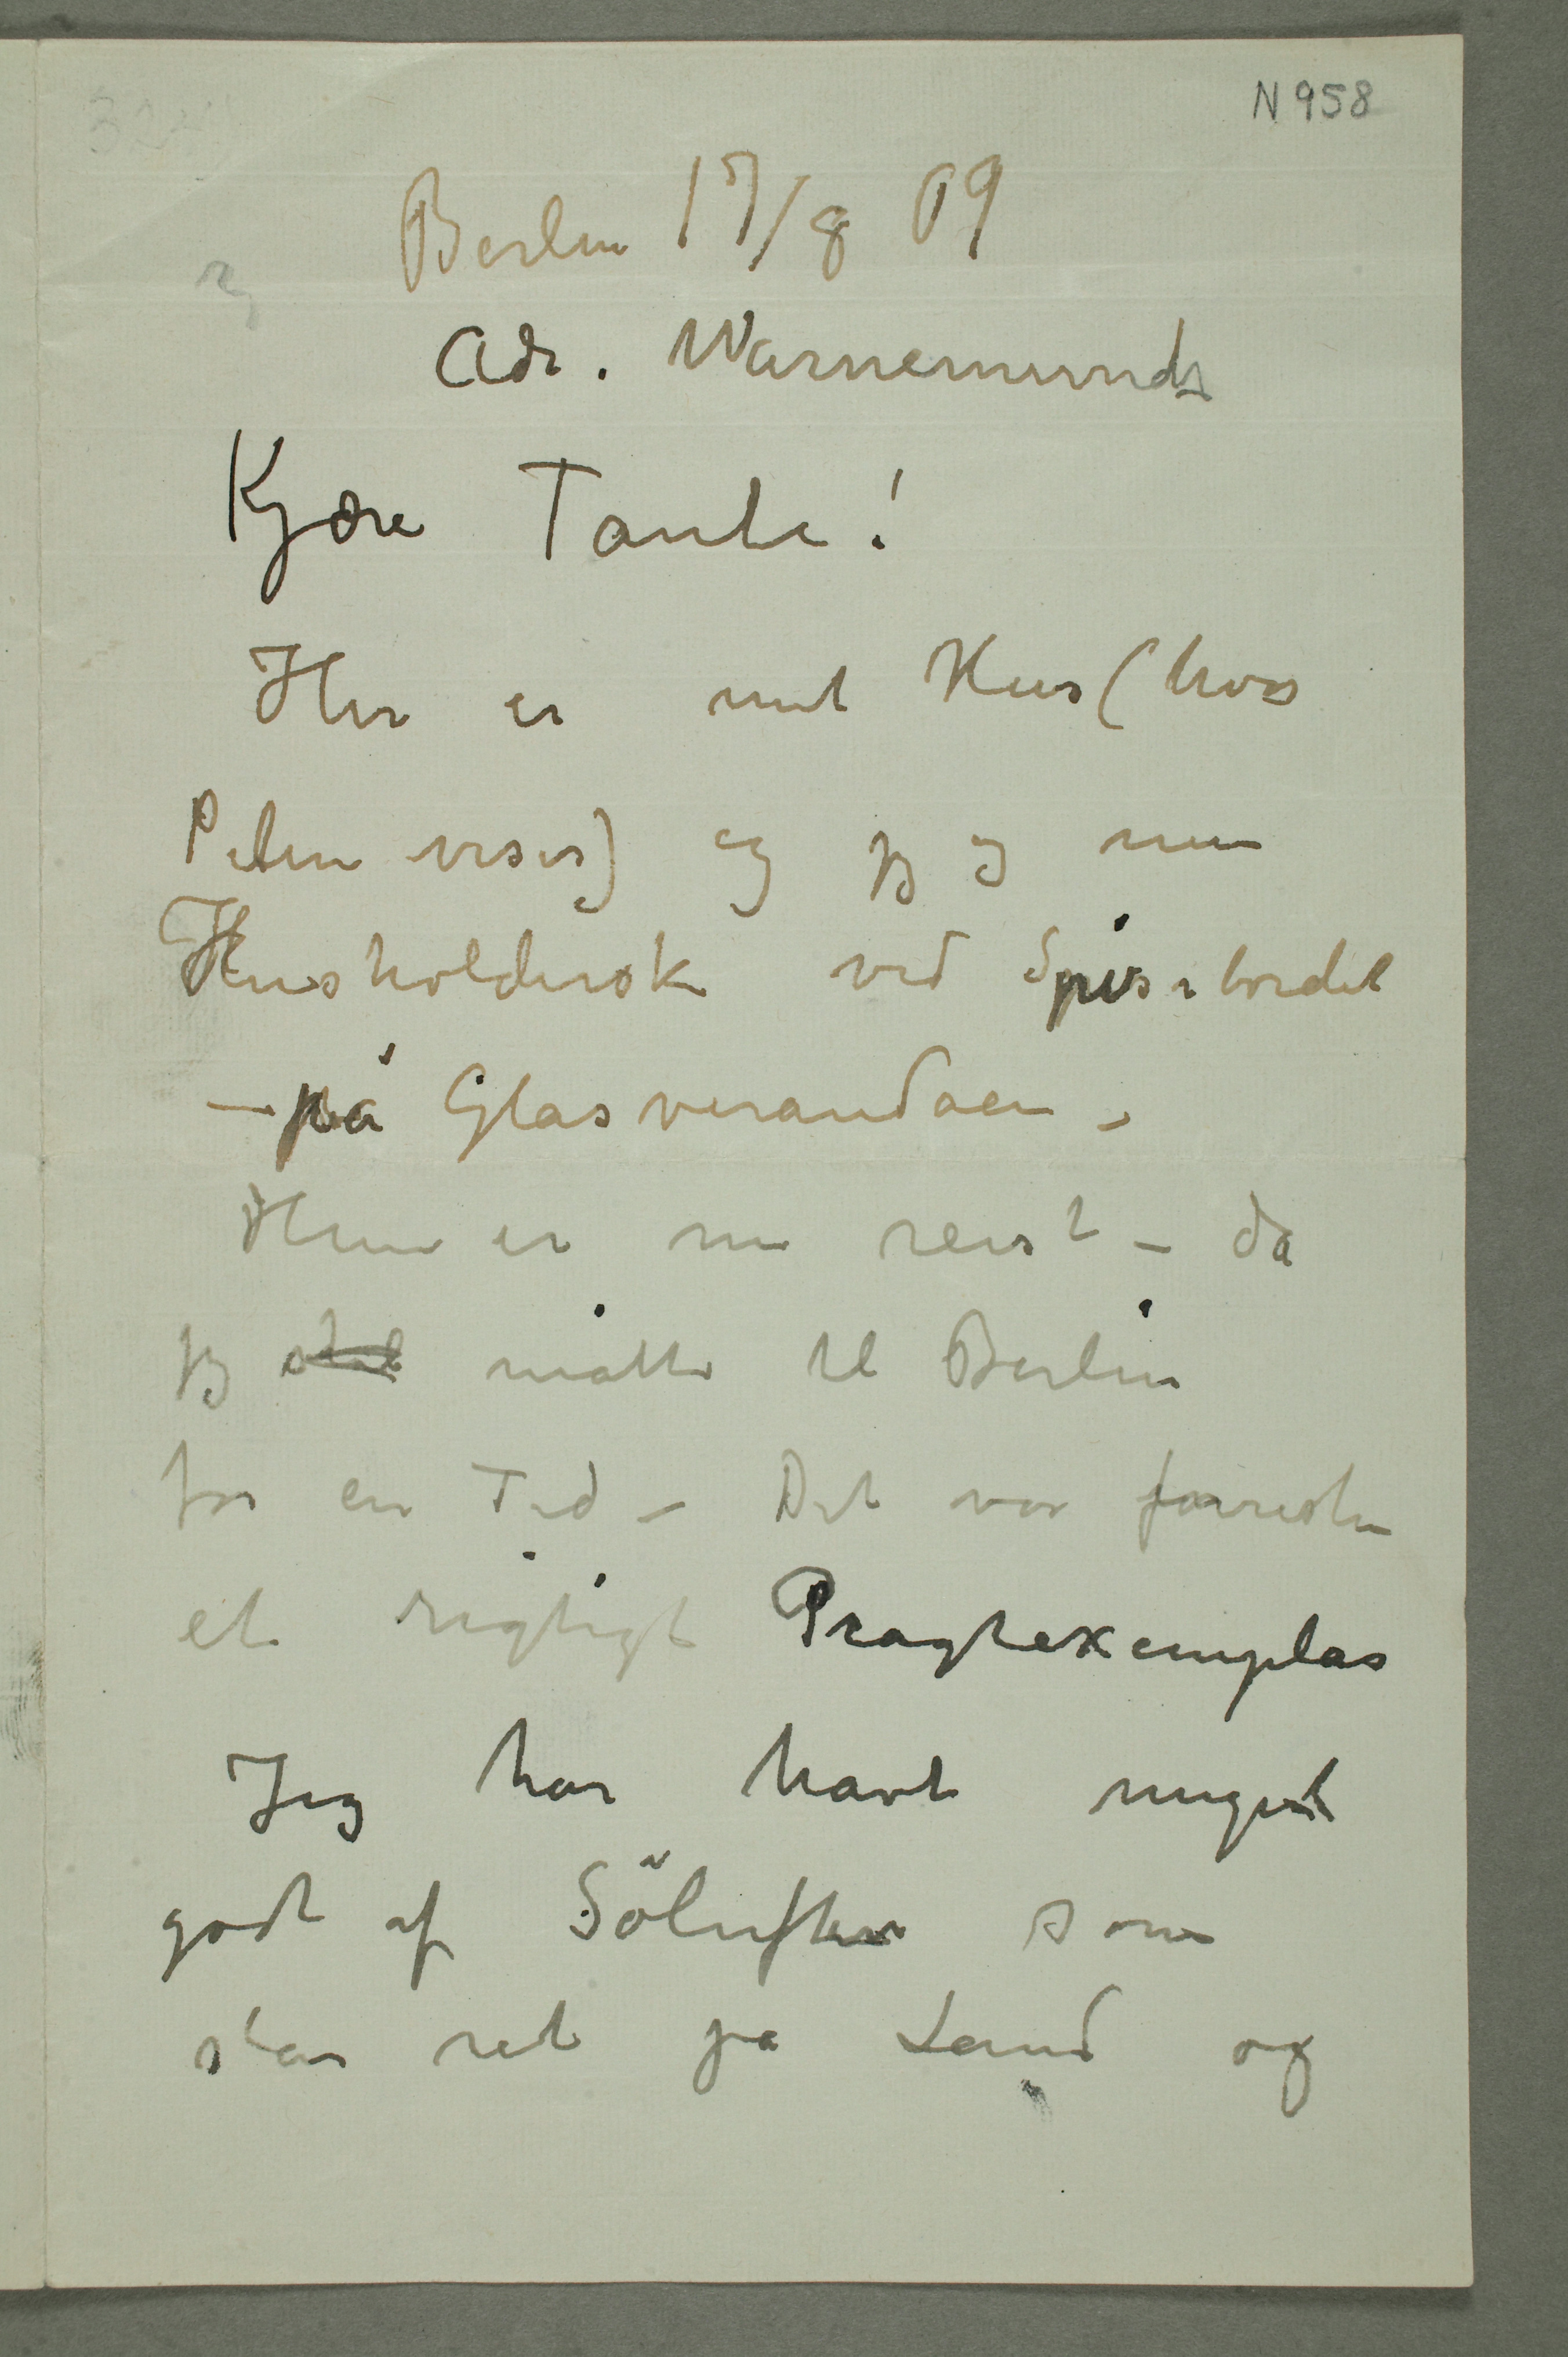 N 958
Berlin 17/8 09
Adr. Warnemünde
Kjære Tante!
Her er mit Hus (hvor
Pilen viser) og jeg og min
Husholderske ved Spisebordet
– på Glasverandaen –
Hun er nu reist – da
jeg skal måtte til Berlin
for en Tid – Det var forresten
et rigtigt Pragtexemplar
Jeg har havt meget
godt af Söluften som
står ret på Land og